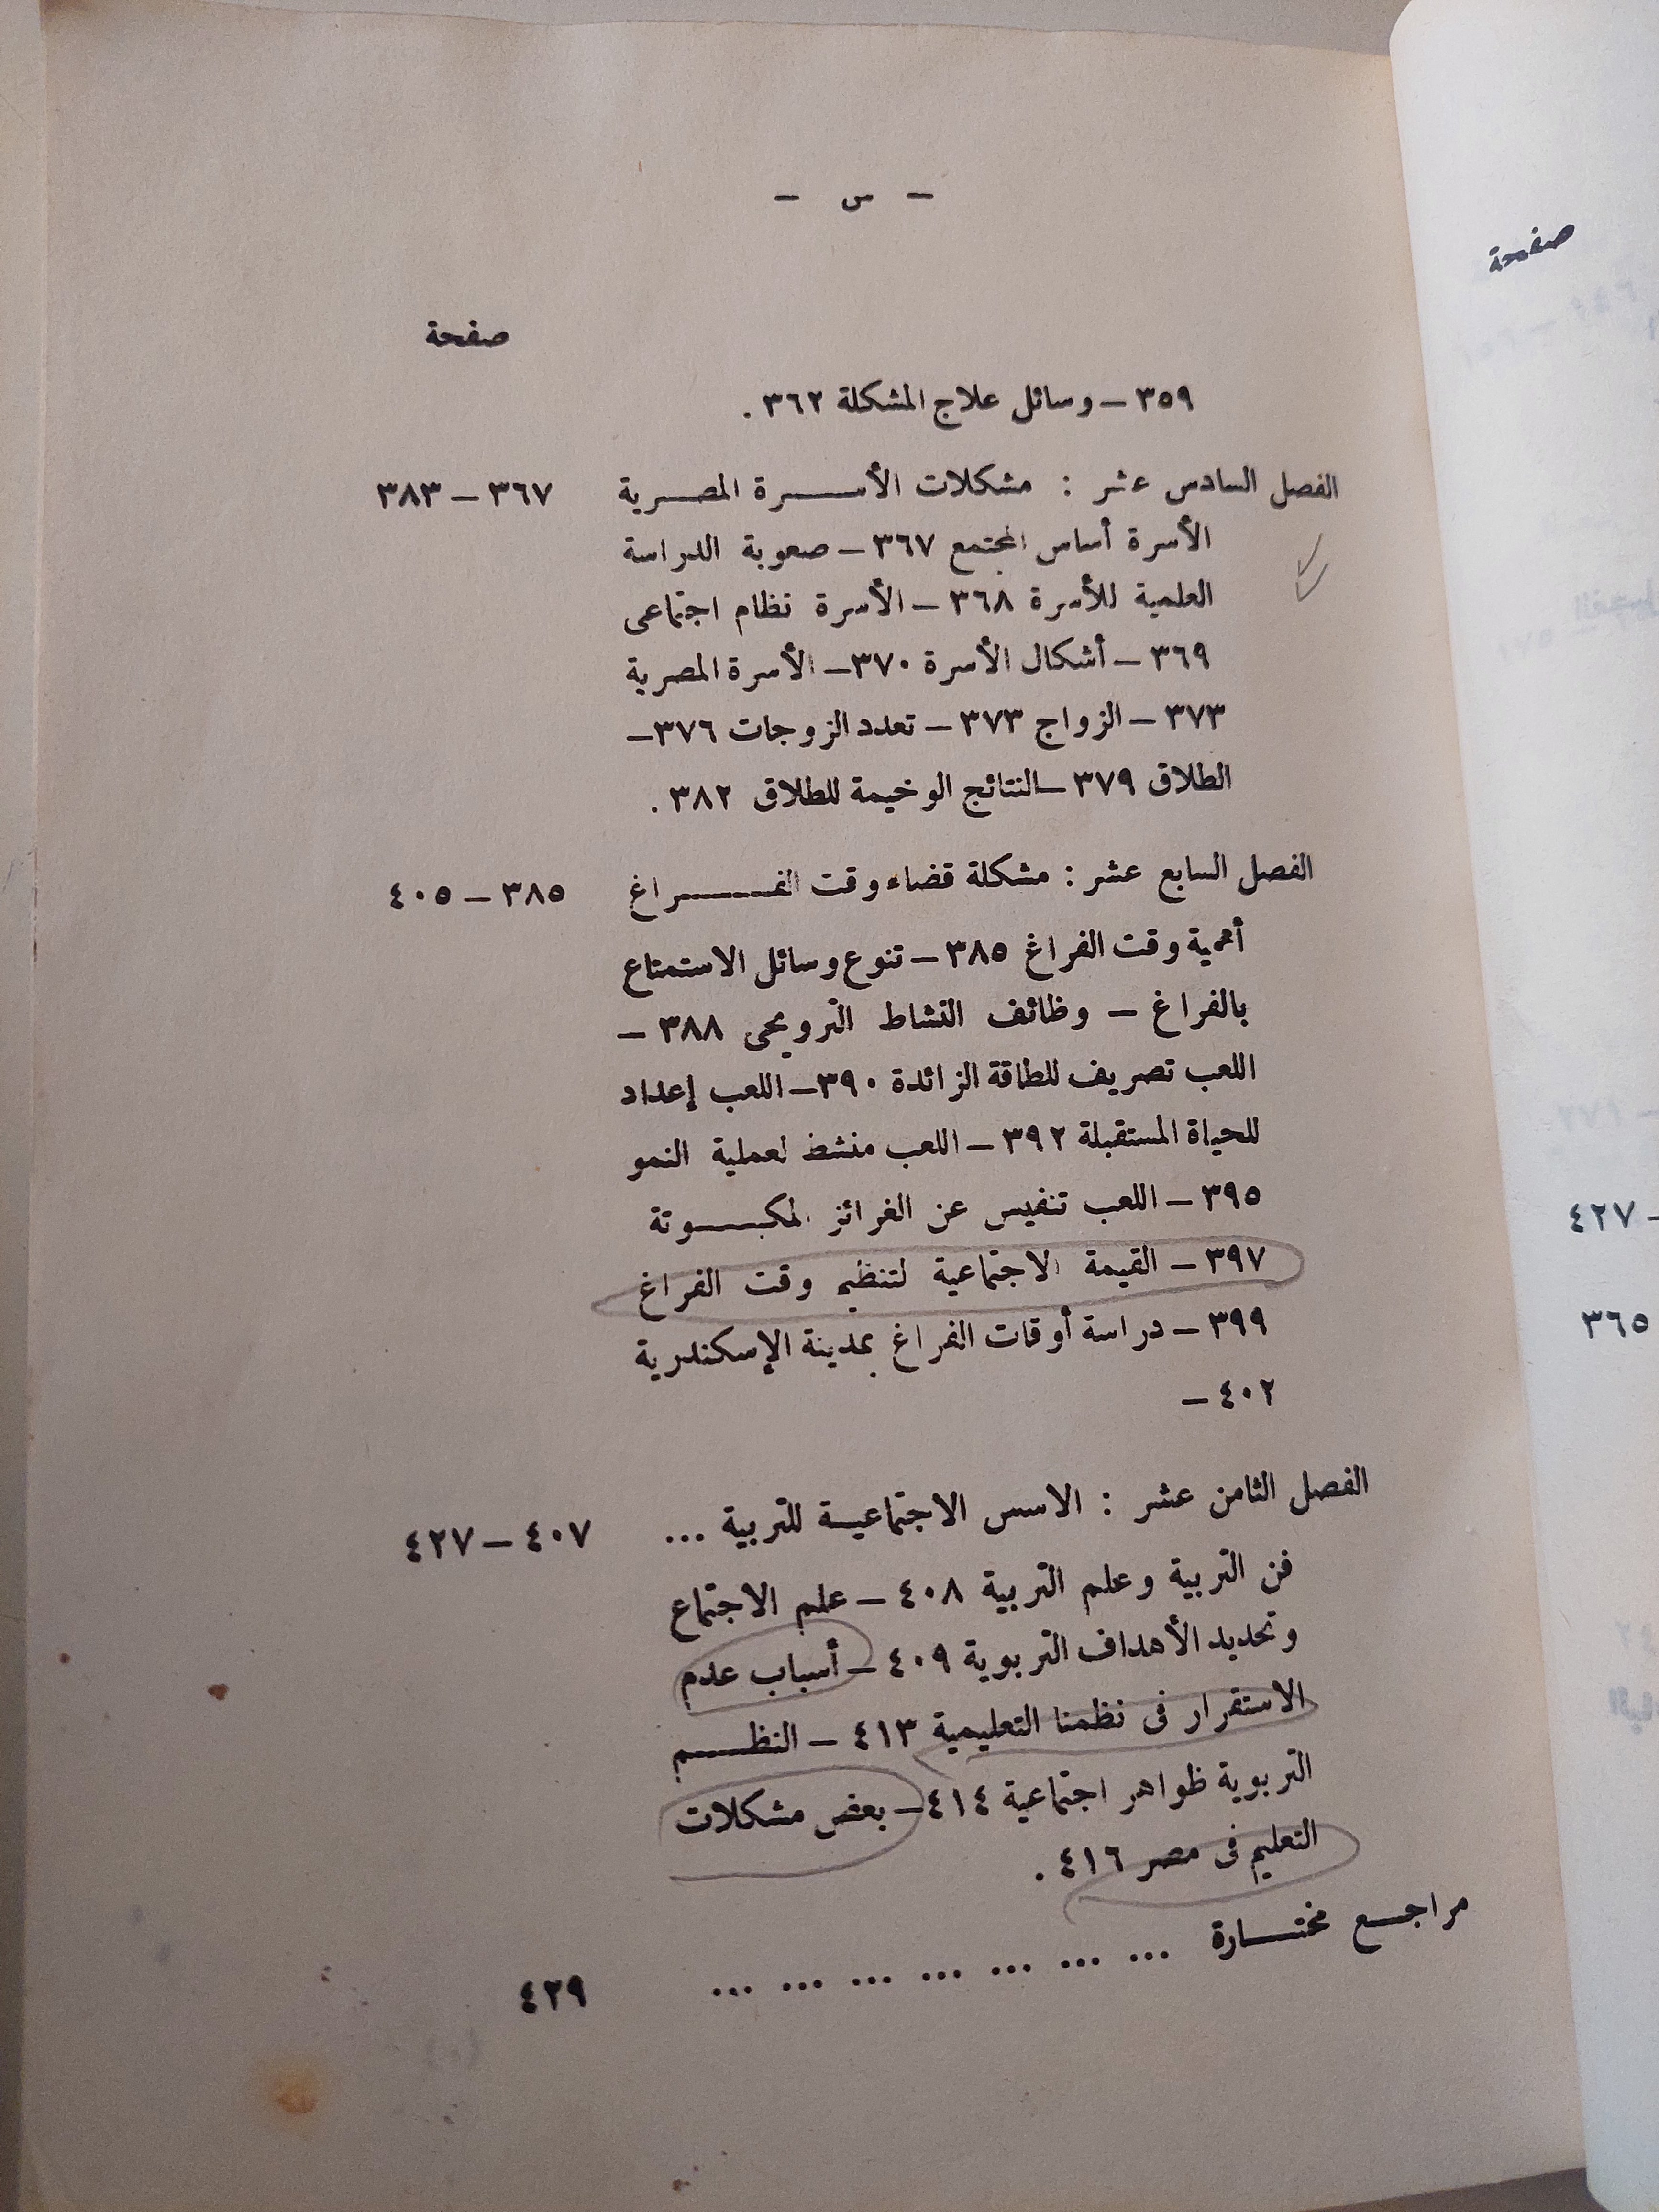 — س —
صفحة
٣٥٩ — وسائل علاج المشكلة ٣٦٢ .
الفصل السادس عشر : مشكلات الأسرة المصرية ٣٦٧ — ٣٨٣
الأسرة أساس المجتمع ٣٦٧ — صعوبة الدراسة
العلمية للأسرة ٣٦٨ — الأسرة نظام اجتماعى
٣٦٩ — أشكال الأسرة ٣٧٠ — الأسرة المصرية
٣٧٣ — الزواج ٣٧٣ — تعدد الزوجات ٣٧٦ —
الطلاق ٣٧٩ — النتائج الوخيمة للطلاق ٣٨٢ .
الفصل السابع عشر : مشكلة قضاء وقت الفراغ ٣٨٥ — ٤٠٥
أهمية وقت الفراغ ٣٨٥ — تنوع وسائل الاستمتاع
بالفراغ — وظائف النشاط الترويحى ٣٨٨ —
اللعب تصريف للطاقة الزائدة ٣٩٠ — اللعب إعداد
للحياة المستقبلة ٣٩٢ — اللعب منشط لعملية النمو
٣٩٥ — اللعب تنفيس عن الغرائز المكبوتة
٣٩٧ — القيمة الاجتماعية لتنظيم وقت الفراغ
٣٩٩ — دراسة أوقات الفراغ بمدينة الإسكندرية
٤٠٢ —
الفصل الثامن عشر : الاسس الاجتماعية للتربية ... ٤٠٧ — ٤٢٧
فن التربية وعلم التربية ٤٠٨ — علم الاجتماع
وتحديد الأهداف التربوية ٤٠٩ — أسباب عدم
الاستقرار فى نظمنا التعليمية ٤١٣ — النظم
التربوية ظواهر اجتماعية ٤١٤ — بعض مشكلات
التعليم فى مصر ٤١٦ .
مراجع مختارة ... ... ... ... ... ... ... ٤٢٩
صفحة
— ٤٢٧
٣٦٥